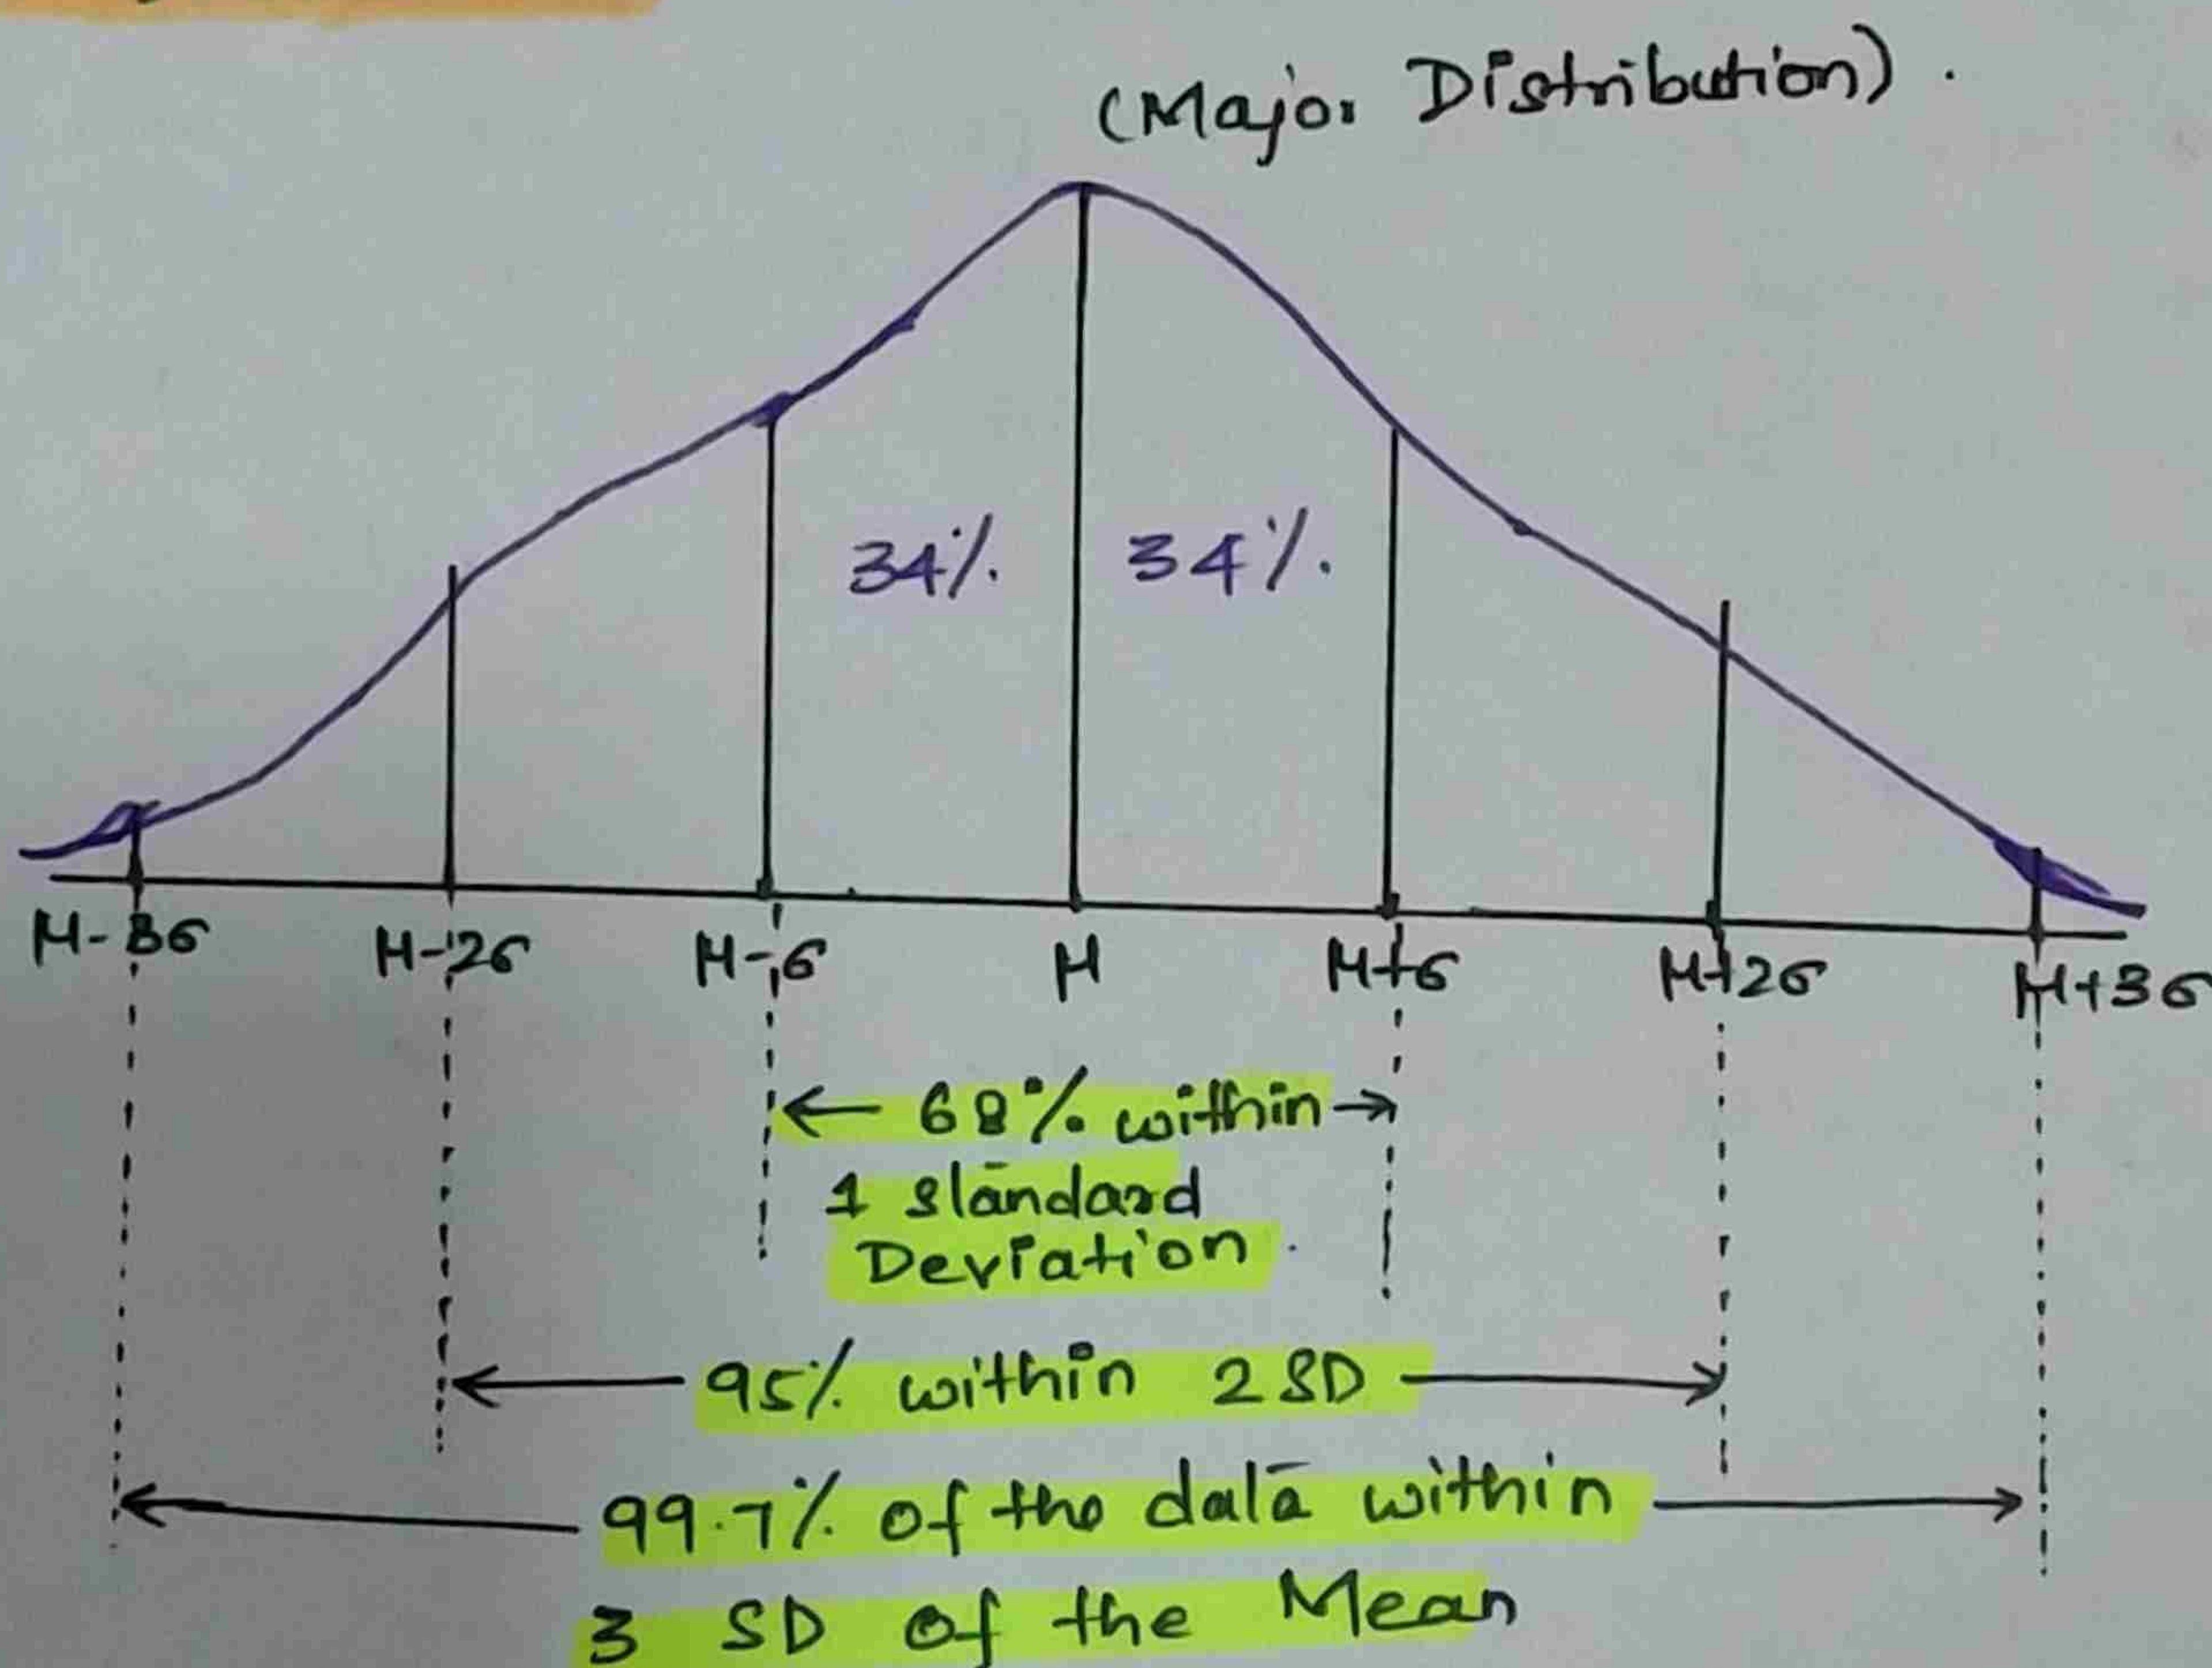 (Major Distribution).
34%. 34%.
μ-3σ μ-2σ μ-σ μ μ+σ μ+2σ μ+3σ
68% within
1 standard
Deviation.
95% within 2SD
99.7% of the data within
3 SD of the Mean